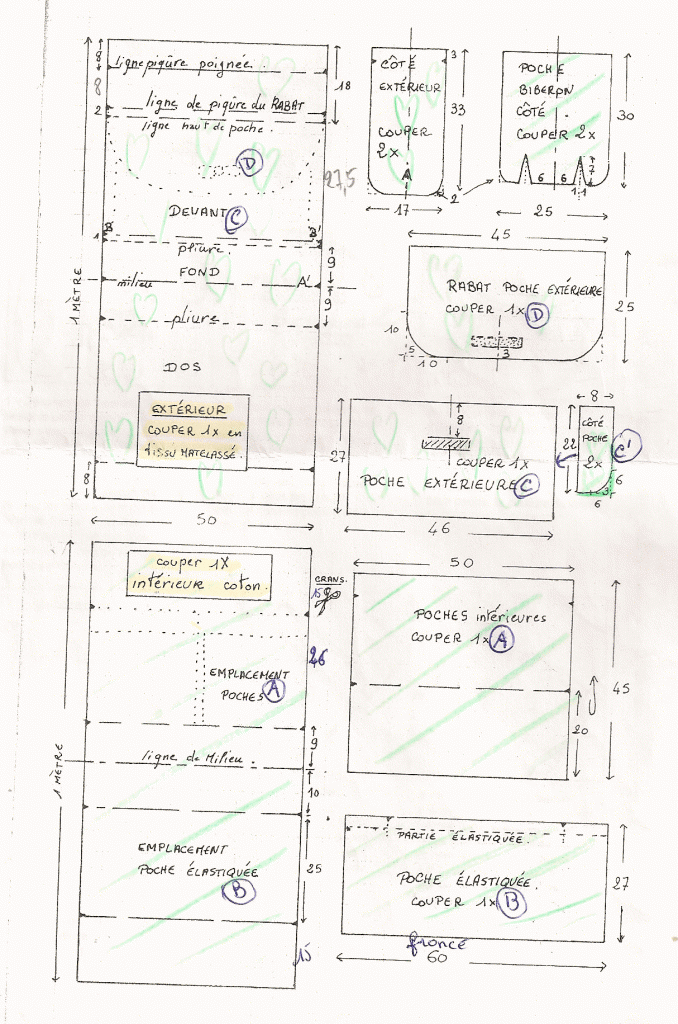 8
ligne piqûre poignée.
18
8
ligne de piqûre du RABAT
2
ligne haut de poche.
D
27,5
DEVANT C
B
B'
1
pliure.
9
FOND
milieu
A'
9
pliure
1 MÈTRE
DOS
EXTÉRIEUR
COUPER 1x en
tissu MATELASSÉ.
8
50
CÔTÉ
EXTÉRIEUR
COUPER
2x
A
3
33
17
2
POCHE
BIBERON
CÔTÉ.
COUPER 2x
30
7
6 6
1 1
25
45
RABAT POCHE EXTÉRIEURE
COUPER 1x D
25
10
5
10
3
8
27
COUPER 1x
POCHE EXTÉRIEURE C
22
46
8
CÔTÉ
POCHE
2x
C'
6
3
6
couper 1X
intérieur coton.
CRANS.
15
26
EMPLACEMENT
POCHES A
9
ligne de Milieu.
1 MÈTRE
10
EMPLACEMENT
POCHE ÉLASTIQUÉE
B
25
15
50
POCHES intérieures
COUPER 1x A
45
20
PARTIE ÉLASTIQUÉE.
POCHE ÉLASTIQUÉE.
COUPER 1x B
27
froncé
60